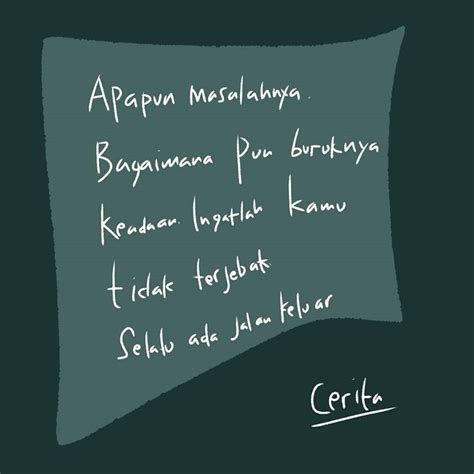 Apapun masalahnya.
Bagaimana pun buruknya
keadaan. Ingatlah kamu
tidak terjebak.
Selalu ada jalan keluar
Cerita